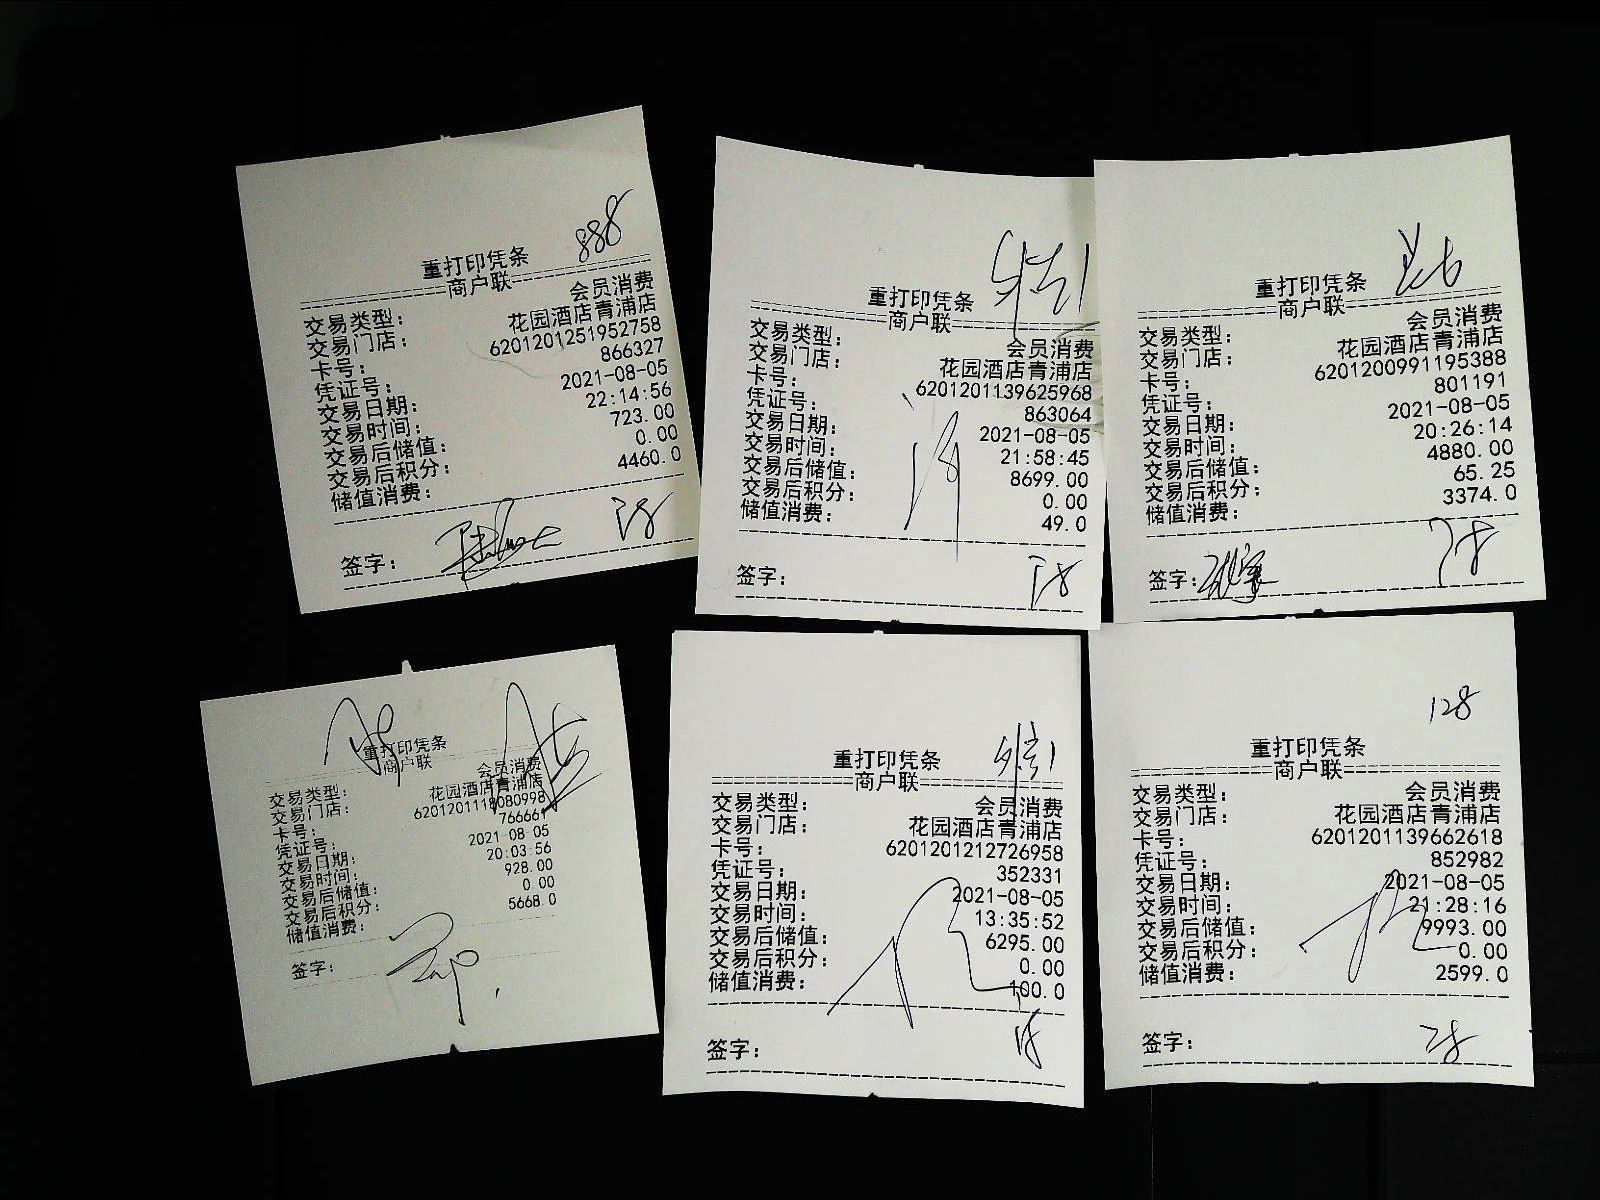 888
重打印凭条
商户联
交易类型： 会员消费
交易门店： 花园酒店青浦店
卡号： 6201201251952758
凭证号： 866327
交易日期： 2021-08-05
交易时间： 22:14:56
交易后储值： 723.00
交易后积分： 0.00
储值消费： 4460.0
签字：
重打印凭条
商户联
交易类型： 会员消费
交易门店： 花园酒店青浦店
卡号： 6201201139625968
凭证号： 863064
交易日期： 2021-08-05
交易时间： 21:58:45
交易后储值： 8699.00
交易后积分： 0.00
储值消费： 49.0
签字：
重打印凭条
商户联
交易类型： 会员消费
交易门店： 花园酒店青浦店
卡号： 6201200991195388
凭证号： 801191
交易日期： 2021-08-05
交易时间： 20:26:14
交易后储值： 4880.00
交易后积分： 65.25
储值消费： 3374.0
签字：
重打印凭条
商户联
交易类型： 会员消费
交易门店： 花园酒店青浦店
卡号： 6201201118080998
凭证号： 766661
交易日期： 2021-08-05
交易时间： 20:03:56
交易后储值： 928.00
交易后积分： 0.00
储值消费： 5668.0
签字：
重打印凭条
商户联
交易类型： 会员消费
交易门店： 花园酒店青浦店
卡号： 6201201212726958
凭证号： 352331
交易日期： 2021-08-05
交易时间： 13:35:52
交易后储值： 6295.00
交易后积分： 0.00
储值消费： 100.0
签字：
128
重打印凭条
商户联
交易类型： 会员消费
交易门店： 花园酒店青浦店
卡号： 6201201139662618
凭证号： 852982
交易日期： 2021-08-05
交易时间： 21:28:16
交易后储值： 9993.00
交易后积分： 0.00
储值消费： 2599.0
签字：